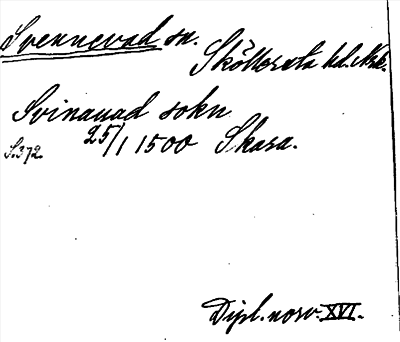 Svennevad sn.
Sköllersta hd. Nrk.
Svinauad sokn
S. 372. 25/1 1500 Skara.
Dipl. norv. XVI.